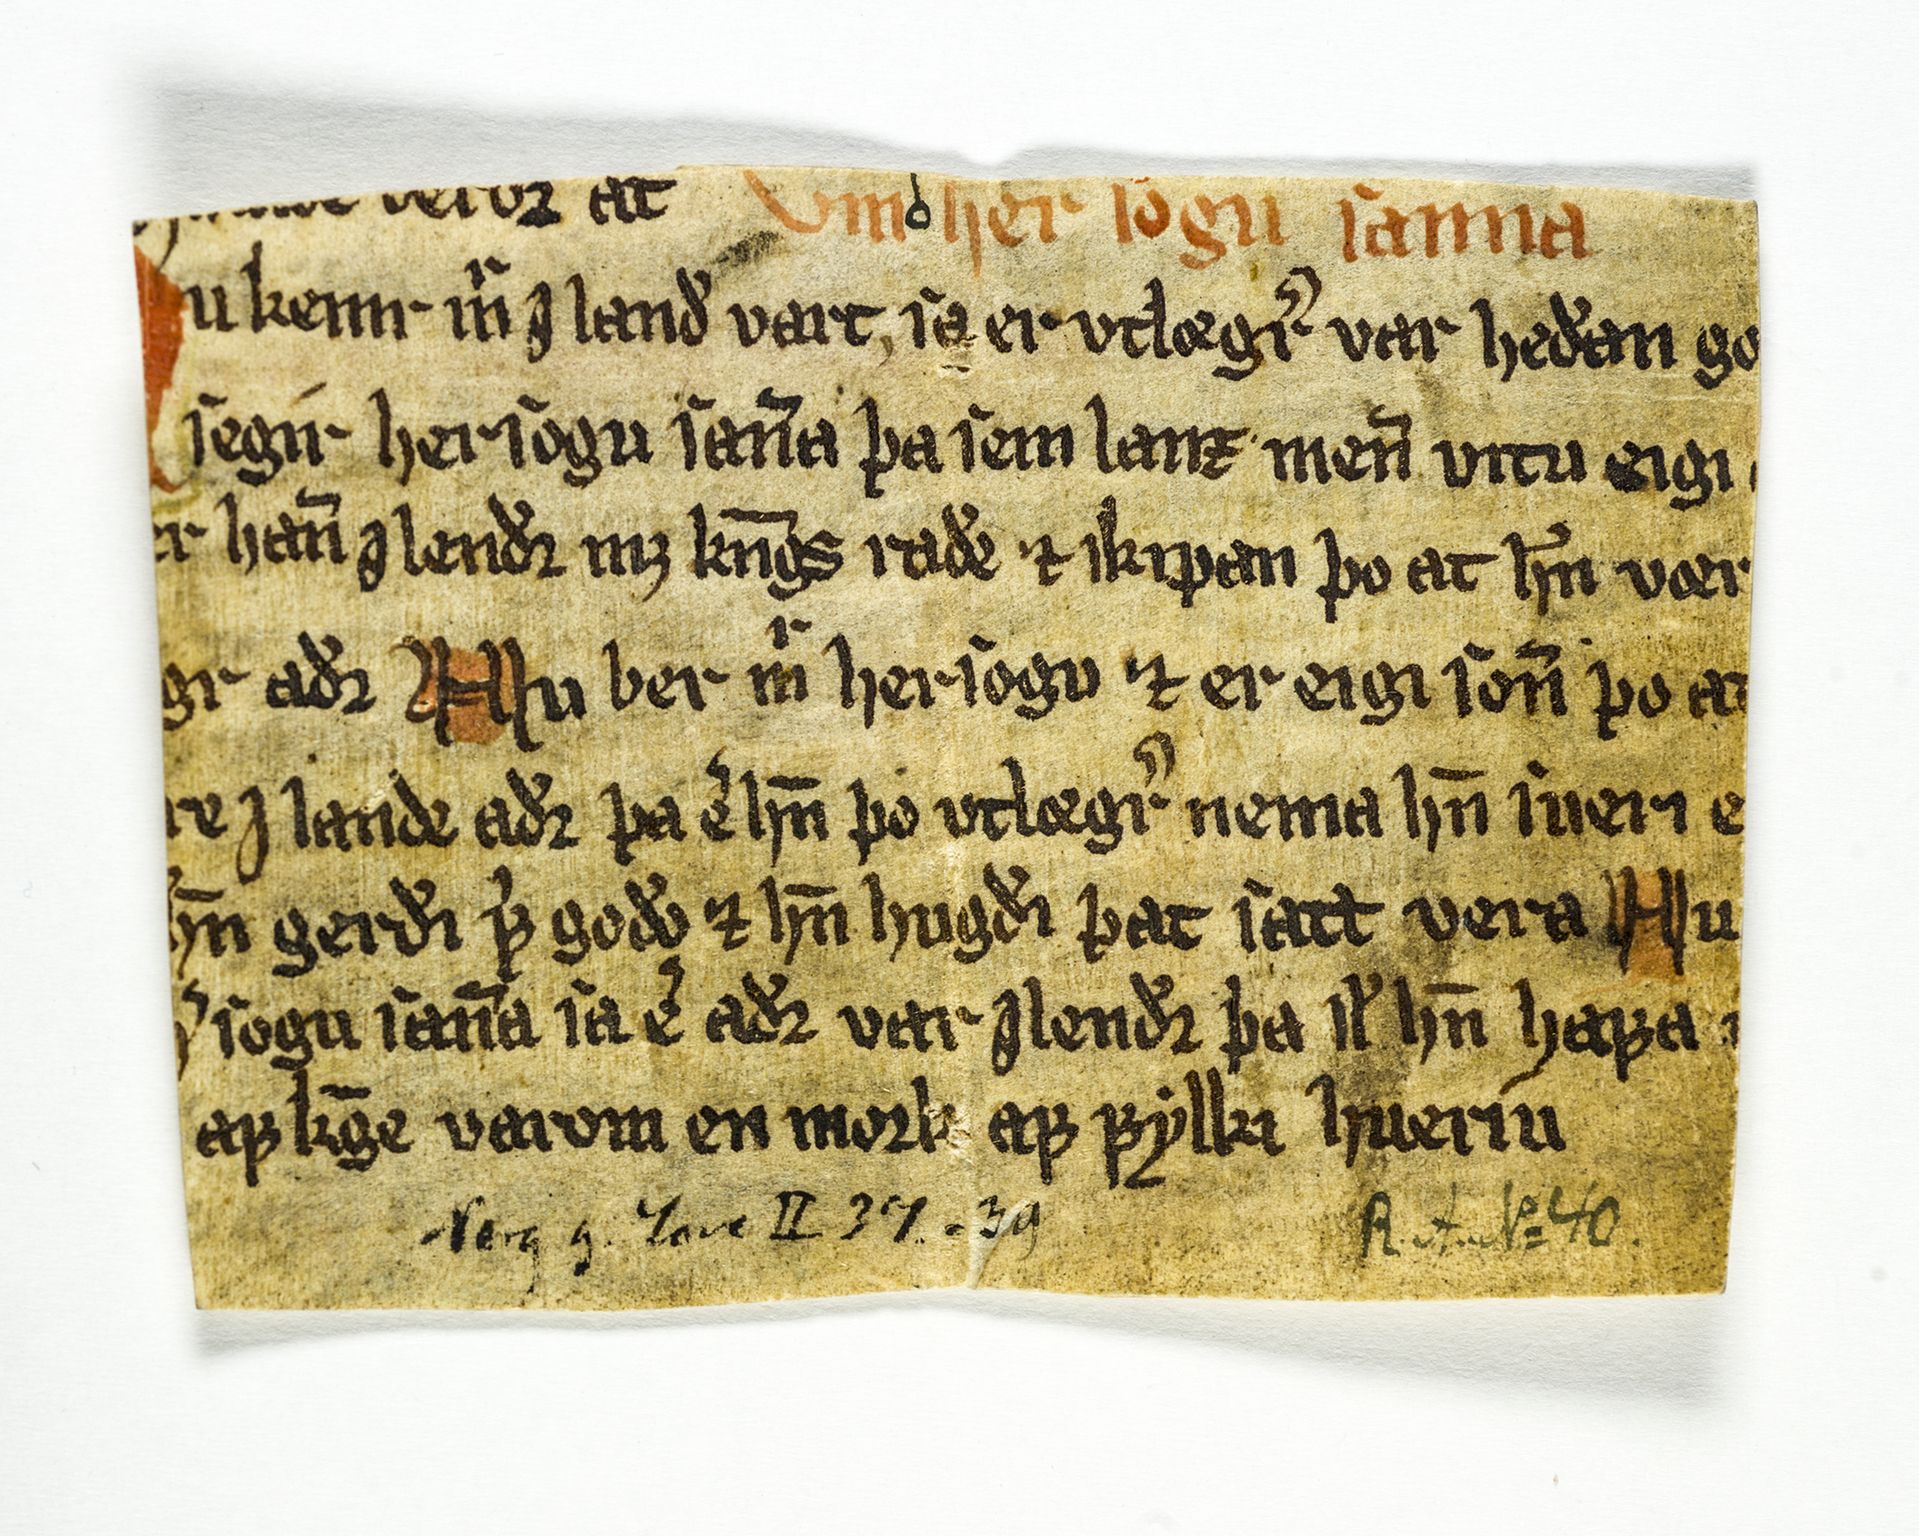 verdꝛ at Vm her ſogu ſanna
u kemr mr̄ J land vart, ſa er vtlægr var hedan go
ſegir her ſogu ſan̄a þa ſem lanz men̄ vitu eigi
er han̄ J lendꝛ mꝫ kn̄gs rade ⁊ ſkipan þo at hn̄ vær
gr adꝛ Nu ber mr̄ her ſogu ⁊ er eigi ſon̄ þo at
re J lande adꝛ þa e͛ hn̄ þo vtlægr nema hn̄ ſueri e
hn̄ gerdi þͥ godo ⁊ hn̄ hugdi þat ſatt vera Nu
ſogu ſan̄a ſa e͛ adꝛ var J lendꝛ þa ſl̛ hn̄ hafa
af kḡe varom en mork af fylki hueriu
Norg g. Love II 37.-39
R. A. No 40.